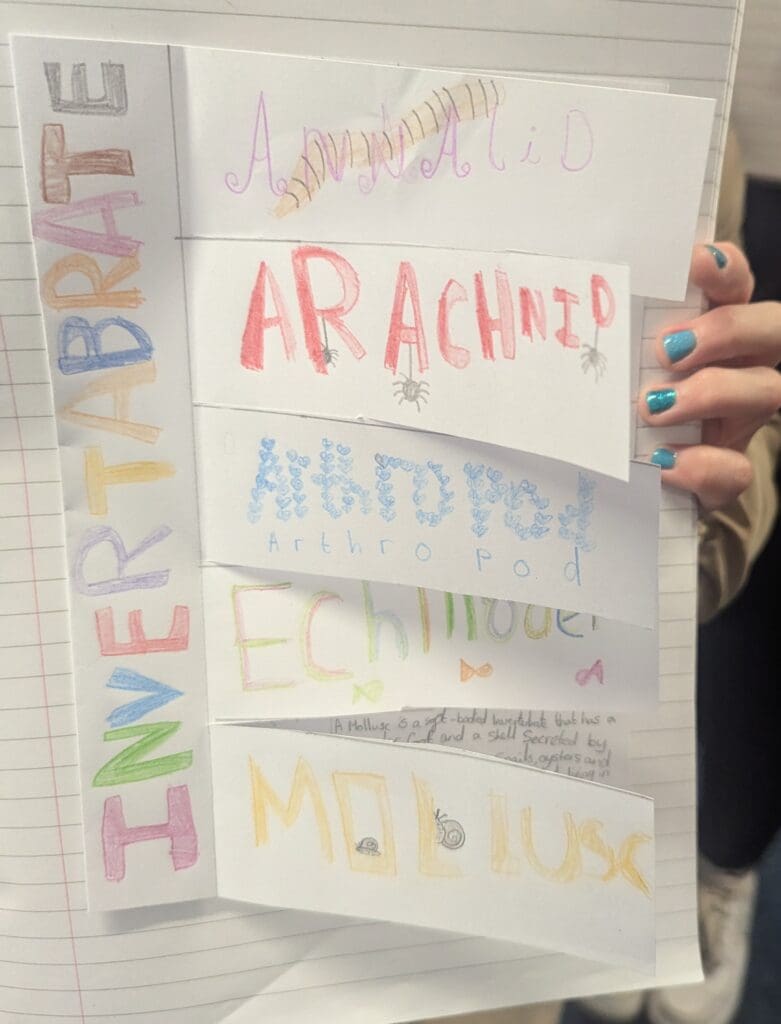 INVERTABRATE
ANNALiD
ARACHNID
Arthropod
Arthropod
Echinoder
A Mollusc is a soft-bodied invertebrate that has a
foot and a shell Secreted by
Snails, oysters and
living in
MOLLUSC